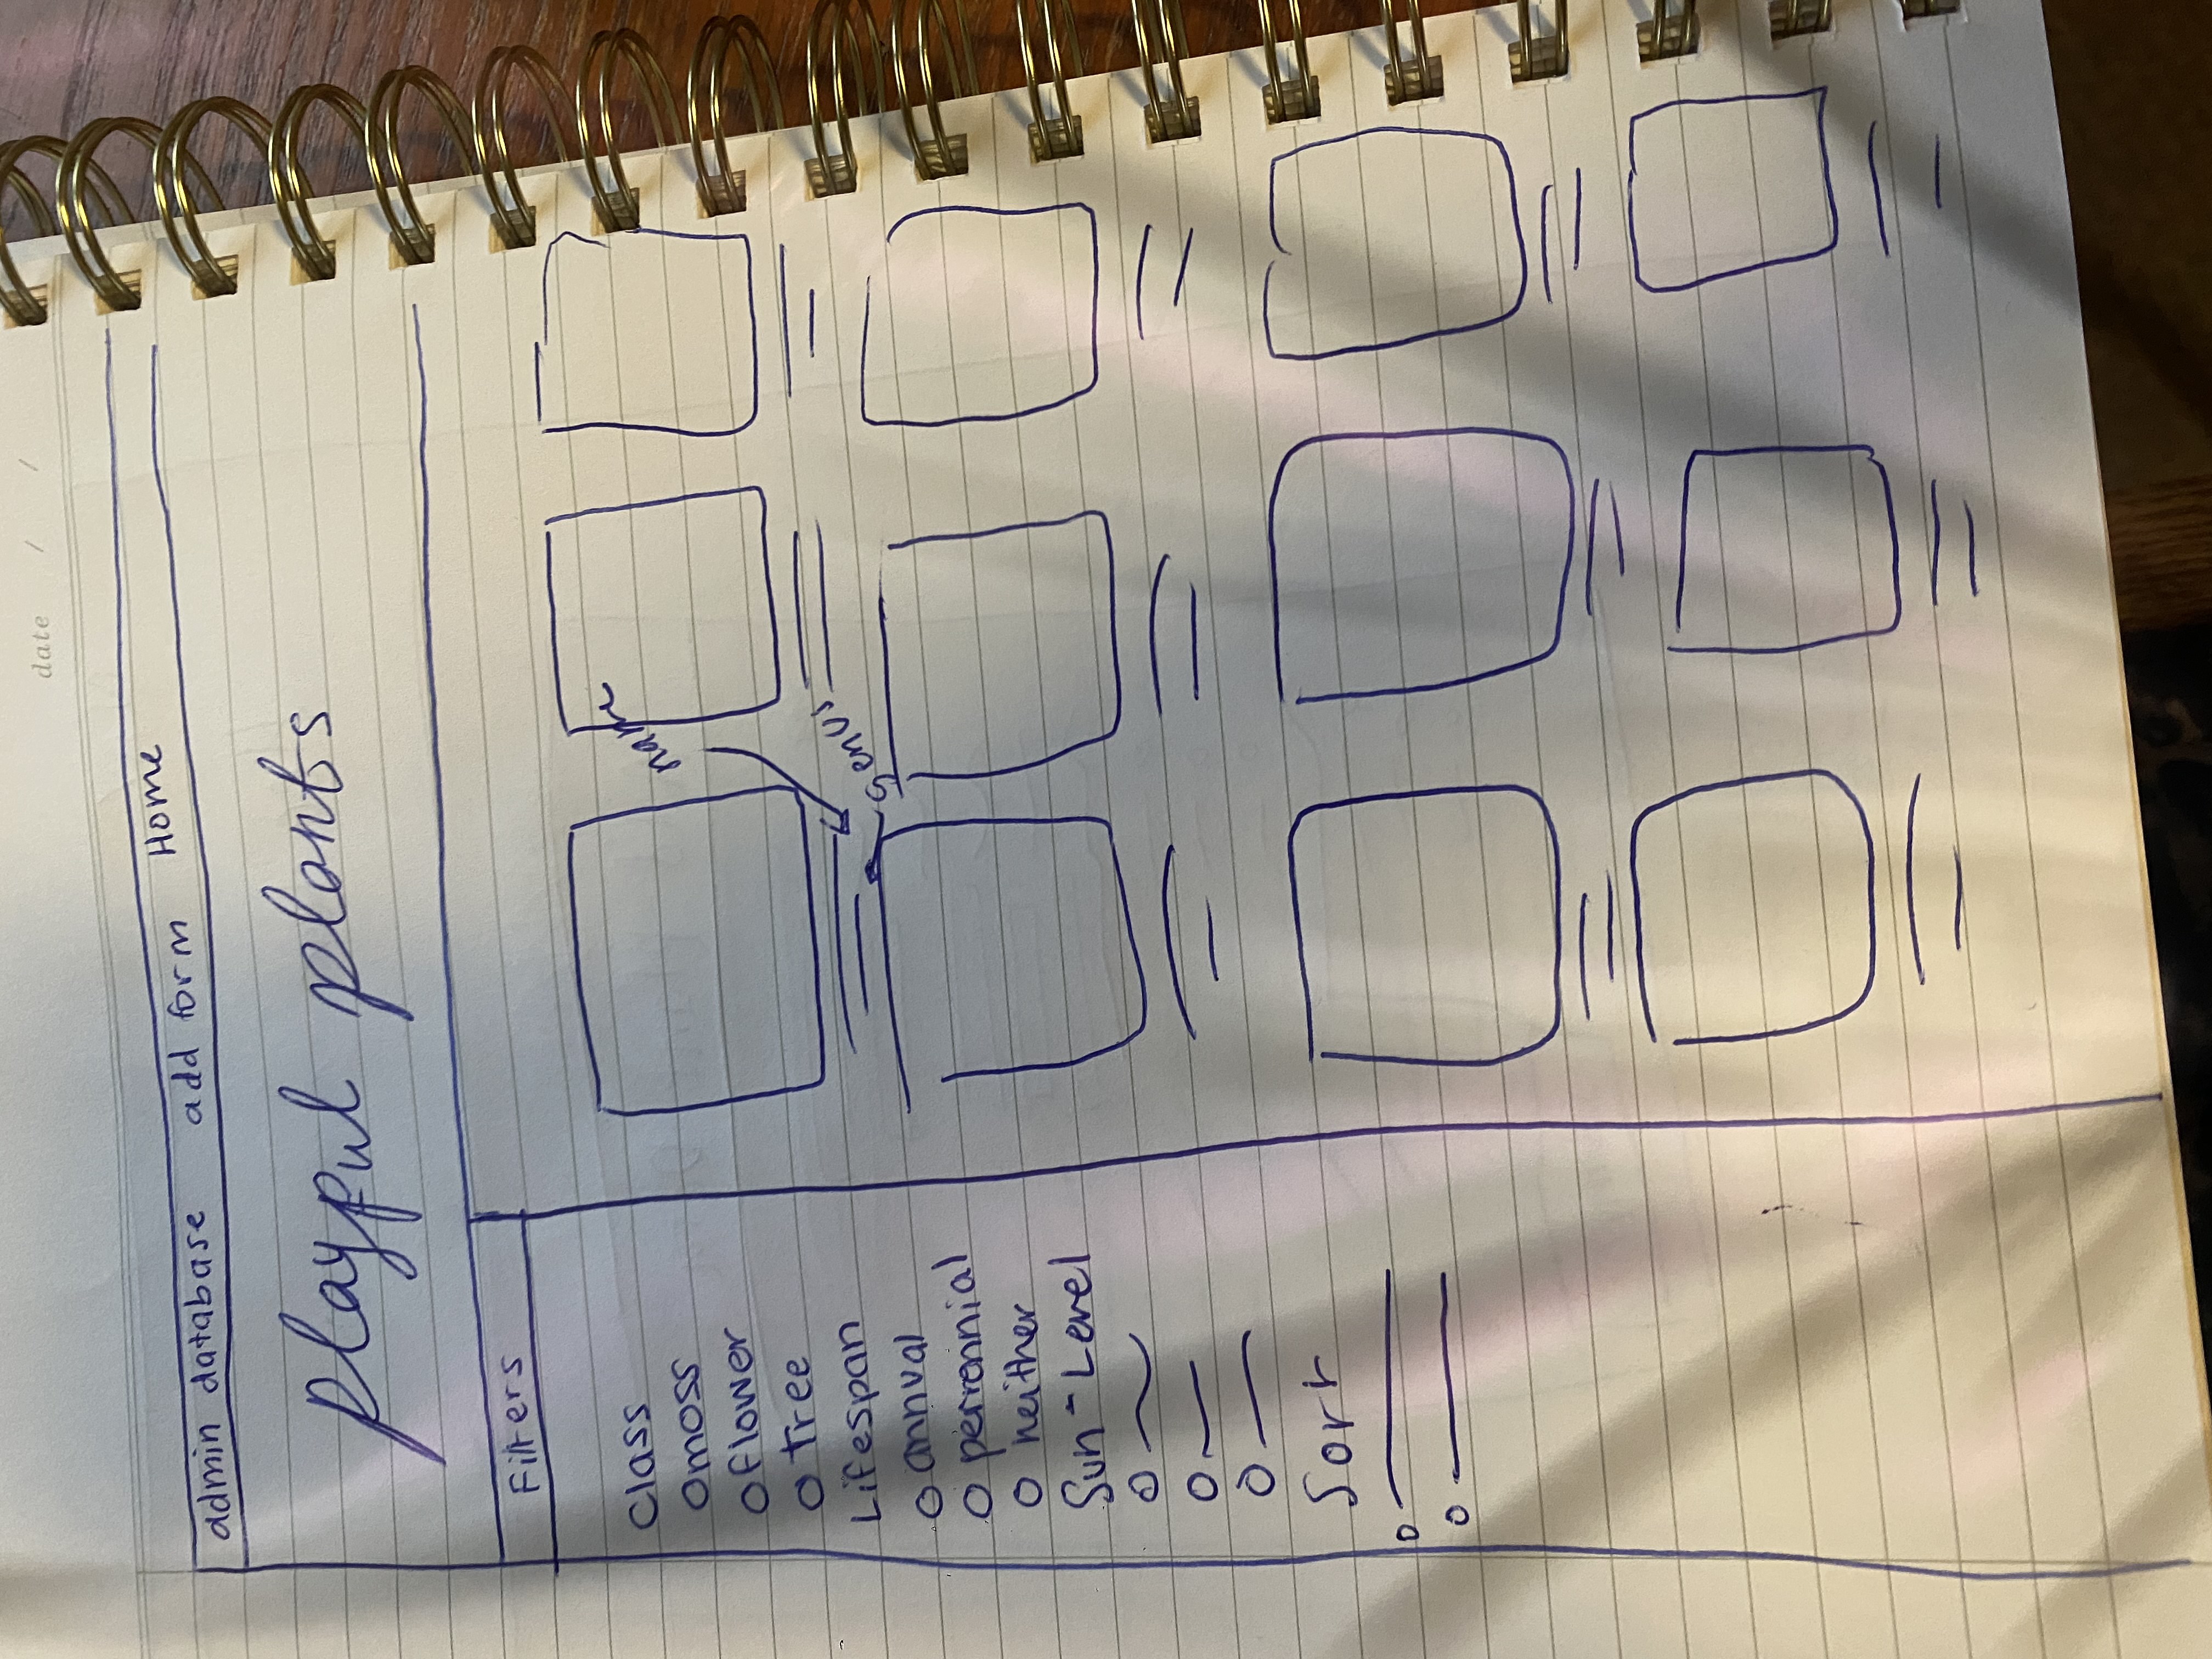 date / /
admin database add form Home
playful plants
Filters
Class
moss
flower
tree
Lifespan
annual
perrennial
neither
Sun-Level
Sort
name
genus